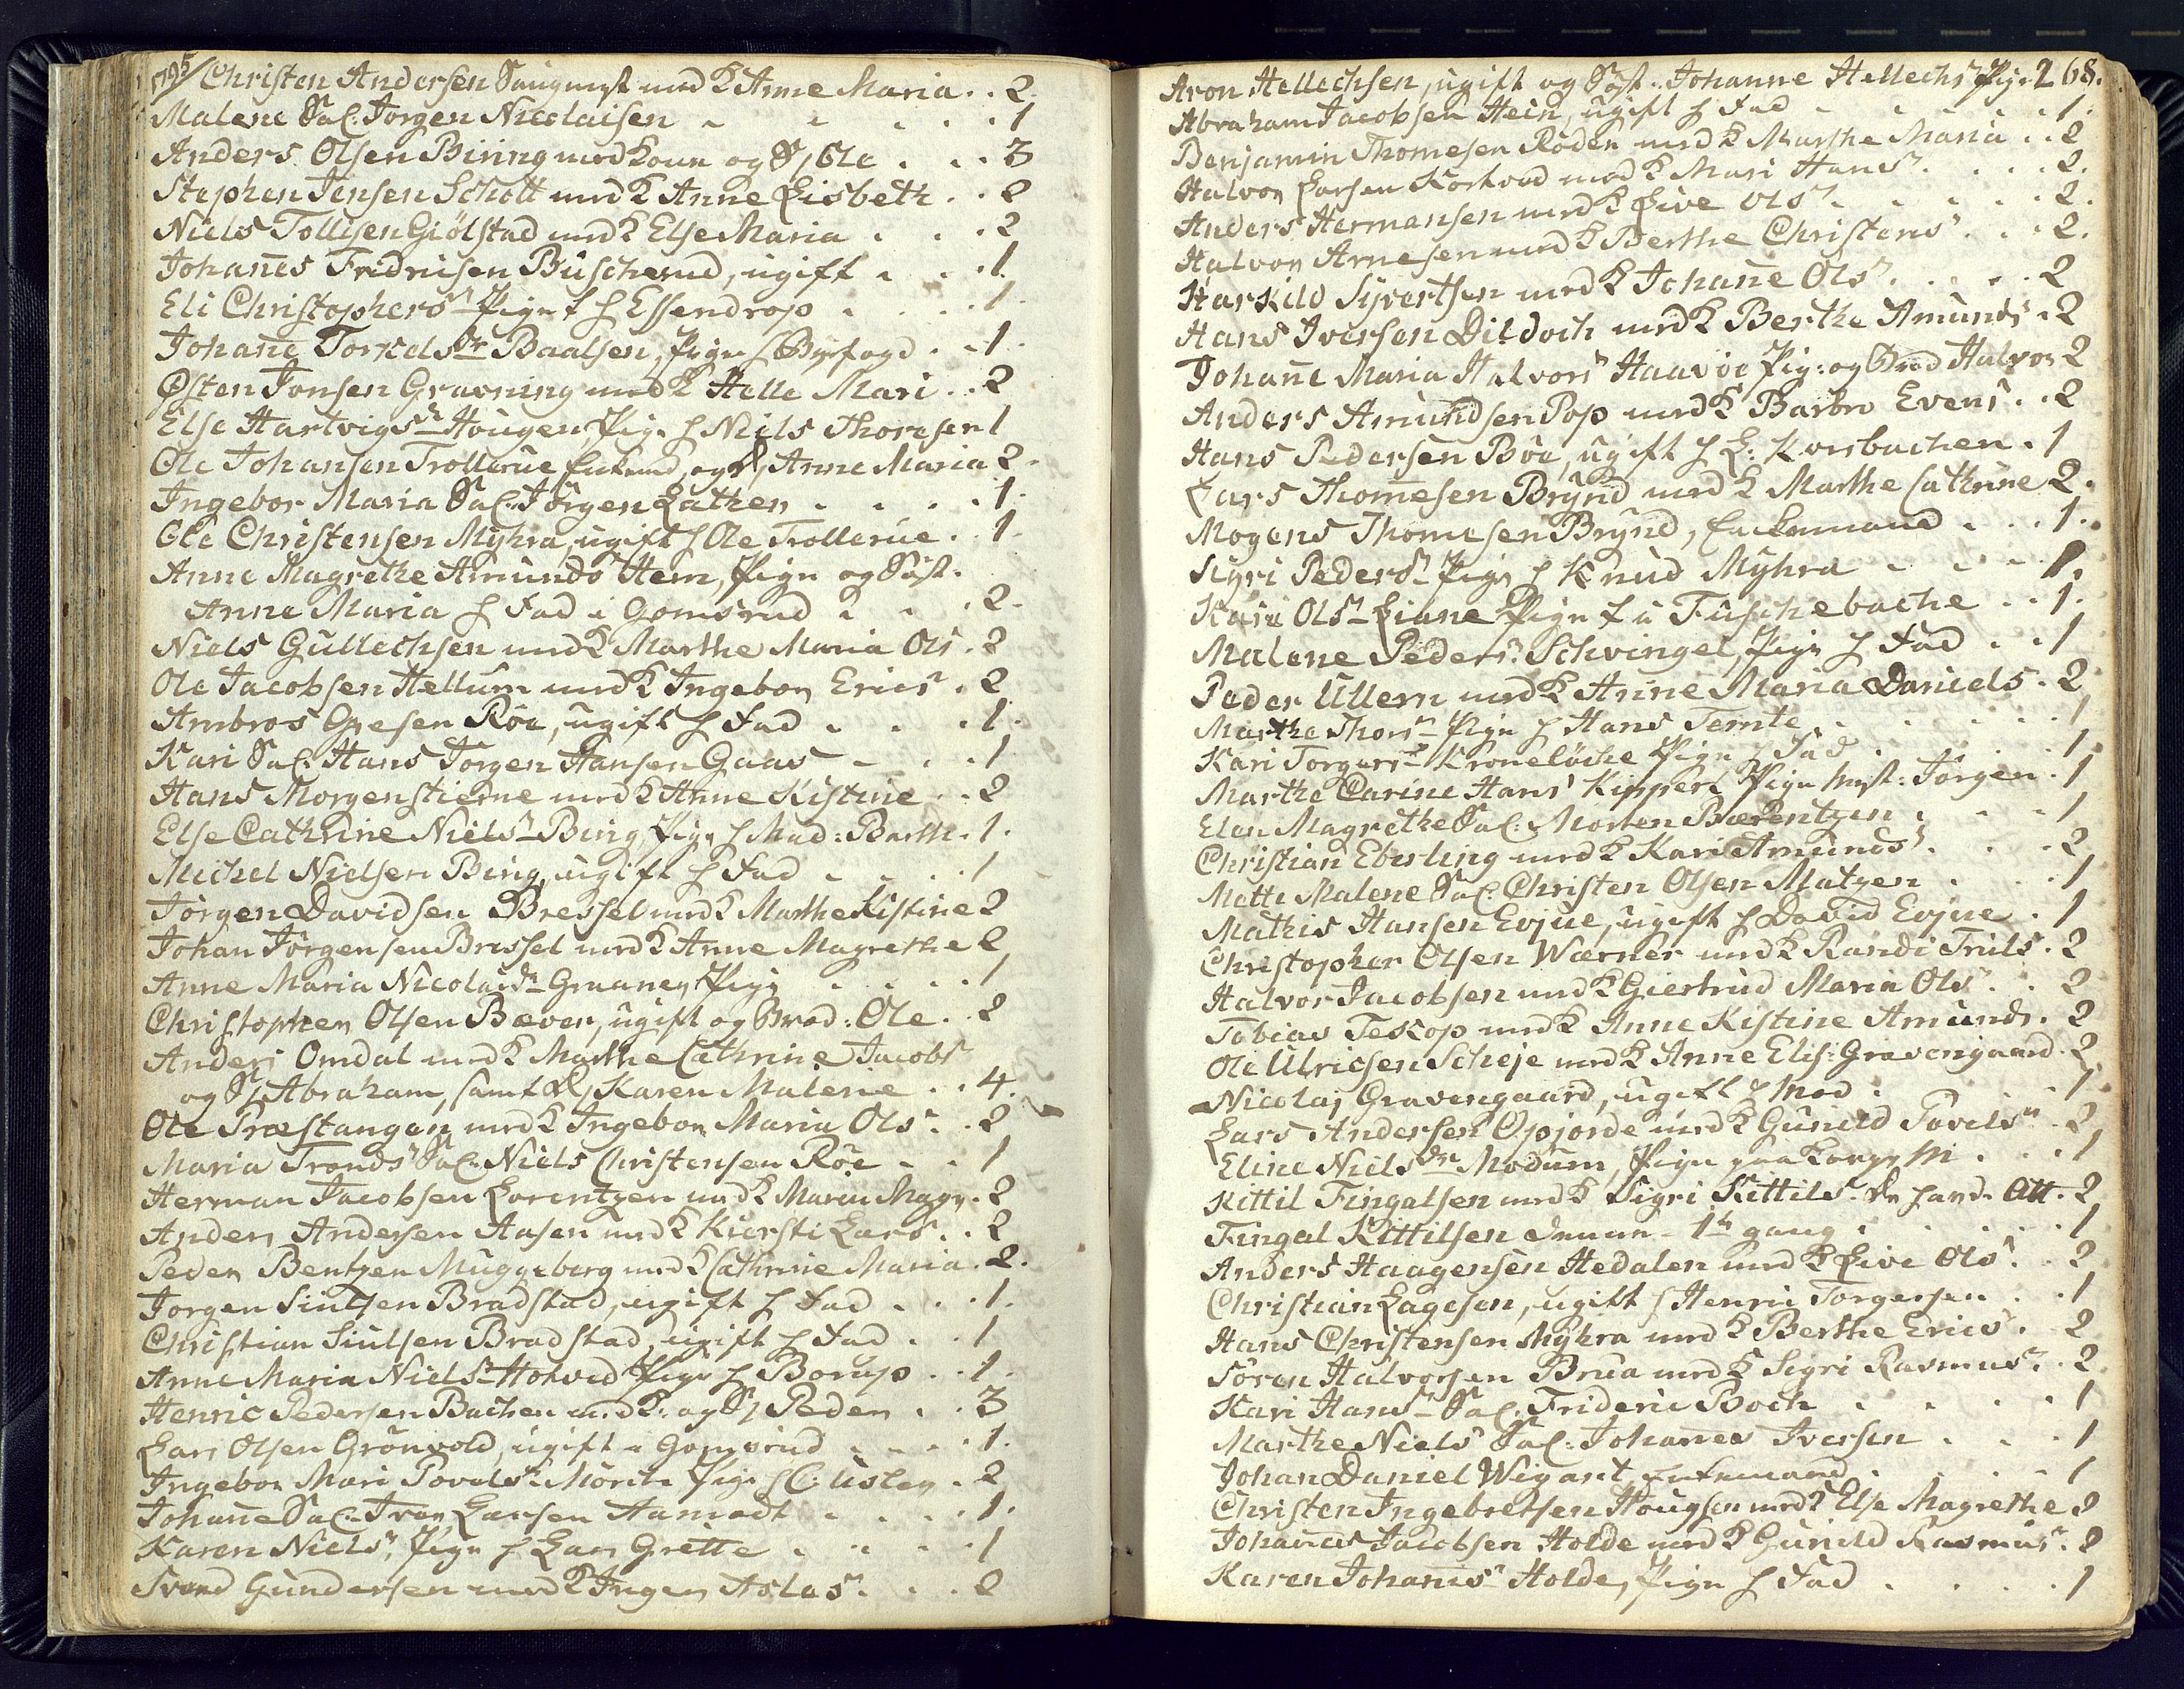 1795/ Christen Andersen Saugmest med K Anne Maria . . 2.
Malene Sal. Jorgen Nicolaisen . . . . . 1
Anders Olsen Biring med Konen og S/ Ole . . . 3
Stephen Jensen Schott med K Anne Lisbeth . . 2
Niels Tollisen Giölstad med K Else Maria . . . 2
Johanēs Fredrichsen Buscherud, ugift . . . 1.
Eli Christophersdr Pige f h Essendrop . . . . 1.
Johane Torkelsdr Baalsen, Pige h Byefogd . . 1.
Østen Jonsen Gravning med K Helle Mari . . 2
Else Hartvigsdr Hougen, Pige h Niels Thoresen 1
Ole Johansen Trollerue Enkemd, og D/ Anne Maria 2.
Ingebor Maria Sal. Jörgen Lathen . . . . 1.
Ole Christensen Myhra, ugift h Ole Trollerue . 1.
Anne Magrethe Amunds Hem, Pige og Søst.
Anne Maria h Fad i Gomsrud . . . . 2.
Niels Gullechsen med K Marthe Maria Ols . 2
Ole Jacobsen Hellum med K Ingebor Erics . 2
Ambros Giesen Röe, ugift h Fad . . . . 1.
Kari Sal. Hans Jorgen Hansen Gaas . . . 1
Hans Morgenstierne med K Anne Kistine . . 2
Else Cathrine Nielsdr Bing, Pige h Mad: Barth . 1.
Michel Nielsen Bing, ugift h Fad . . . . 1
Jörgen Davidsen Bressel med K Marthe Kistine 2
Johan Jörgensen Bressel med K Anne Magrethe 2
Anne Maria Nicolaidr Graaner Pige . . . . 1
Christopher Olsen Bæver, ugift og Brod: Ole . 2
Anders Omdal med K Marthe Cathrine Jacobs
og S/ Abraham, samt D/ Karen Malene . . 4.
Ole Præstangen med K Ingebor Maria Ols . . 2
Maria Tronds Sal. Niels Christensen Röe . . 1
Herman Jacobsen Lorentzen med K Maren Magr. 2
Anders Andersen Aasen med K Kiersti Lars . . 2
Peder Bentzen Muggeberg med K Cathrine Maria . 2.
Jorgen Siulsen Bradstad, ugift h Fad . . . 1.
Christian Siulsen Bradstad, ugift h Fad . . 1
Anne Maria Nielsdr Hotved Pige h Borup . . 1.
Henric Pedersen Bachen med K. og S/ Peder . . 3
Lars Olsen Grönvold, ugift i Gomsrud . . . . 1.
Ingebor Mari Povelsdr Möritz Pige h C: Usler . 2
Johane Sal. Iver Larsen Aamodt . . . . 1.
Karen Niels, Pige h Lars Grette . . . . 1
Svend Gundersen med K Inger Aslas . . . 2
Aron Hellechsen, ugift og Søst. Johanne Hellechs Pig. 2 68.
Abraham Jacobsen Hein, ugift h Fad . . . . 1.
Benjamin Thomesen Röden med K Marthe Maria . . 2
Halvor Larsen Korhvad med K Mari Hans . . . . 2.
Anders Hermansen med K Live Ols . . . . . 2.
Halvor Arnesen med K Berthe Christens . . . 2.
Harkild Syvertsen med K Johane Ols . . . . 2
Hans Iversen Dildoch med K Berthe Amunds . 2
Johane Maria Halvors Haavoe Pig. og Brod Halvor 2
Anders Amundsen Pop med K Barbro Evens . . 2
Hans Pedersen Böe, ugift h L: Korsbachen . 1
Lars Thomesen Brynd med K Marthe Cathrine 2.
Mogens Thomesen Brynd, Enkemand . . . 1.
Sigri Peders Pige h Knud Myhra . . . 1.
Kari Ols Liane Pige f i Fuschebache . . 1.
Malene Peders Schvingel, Pige h Fad . . 1
Peder Ullern med K Anne Maria Daniels . 2
Marthe Thorsdr Pige h Hans Temte . . . . 1
Kari Torgersdr Kroneløche Pige h Fad . . . 1.
Marthe Carine Hans Kippers Pige Mest. Jørgen . 1
Elen Magrethe Sal. Morten Bærentzen . . . 1
Christian Eberling med K Kari Amunds . . . 2
Mette Malene Sal. Christen Olsen Matzen . . 1
Mathis Hansen Evjue, ugift h David Evjue . 1
Christopher Olsen Wærner med K Randi Truls . 2
Halvor Jacobsen med K Giertrud Maria Ols . . 2
Tobias Teskop med K Anne Kistine Amunds . 2
Ole Ulricsen Scheje med K Anne Elis: Gravengaard . 2
Nicolaj Gravengaard, ugift h Mod . . . . 1
Lars Andersen Opjorde med K Gunild Povels . 2
Eline Nielsdr Modum, Pige paa . . . 1
Kittil Fingalsen med K Sigri Kittils . Att. 2
Fingal Kittilsen 1te gang . . . . . 1
Anders Haagensen Hedalen med K Live Ols . . 2
Christian Lagesen, ugift h Henric Torgersen . . 1
Hans Christensen Myhra med K Berthe Erics . 2
Sören Halvorsen Brua med K Sigri Rasmus . . 2
Kari Hans Sal. Frideric Boch . . . . 1
Marthe Niels Sal. Johanes Iversen . . . 1
Johan Daniel Wigant, Enkemand . . . . 1
Christen Ingebretsen Hougsen med K Else Magrethe 2
Johanes Jacobsen Holde med K Gunild Rasmus . 2
Karen Johanis Holde, Pige h Fad . . . . 1